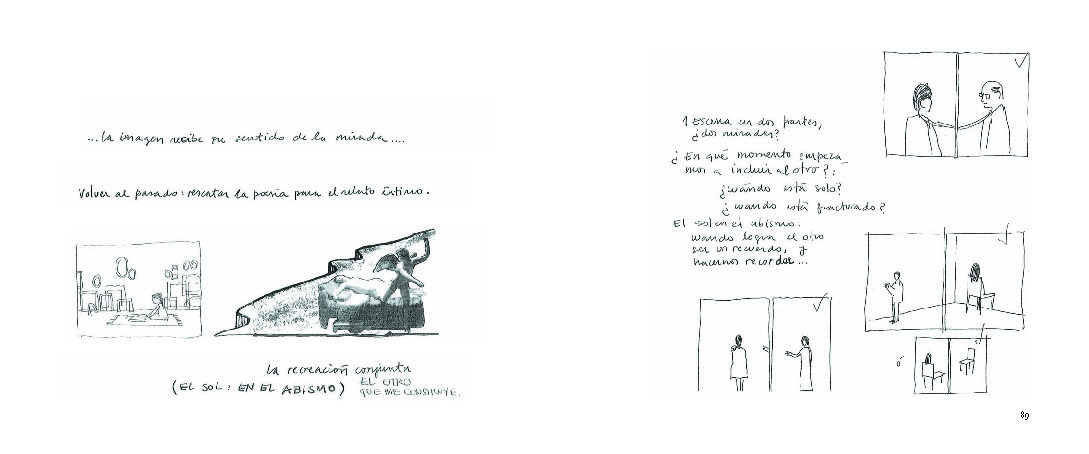 ...La imagen recibe su sentido de la mirada....
Volver al pasado: rescatar la poesía para el relato íntimo.
La recreación conjunta
(EL SOL: EN EL ABISMO)
EL OTRO
QUE ME CONSTRUYE.
1 Escena en dos partes,
¿dos miradas?
¿En qué momento empeza_
mos a incluir al otro?:
¿cuándo está solo?
¿cuando está fracturado?
El sol en el abismo:
cuando logra el otro
ser un recuerdo, y
hacernos recordar...
ó
89